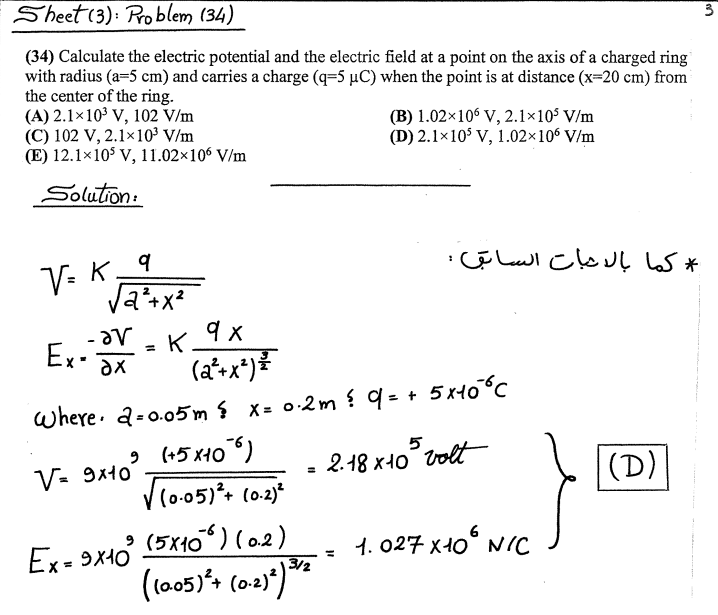 Sheet(3): Problem (34)
3
(34) Calculate the electric potential and the electric field at a point on the axis of a charged ring
with radius (a=5 cm) and carries a charge (q=5 μC) when the point is at distance (x=20 cm) from
the center of the ring.
(A) 2.1×10³ V, 102 V/m
(B) 1.02×10⁶ V, 2.1×10⁵ V/m
(C) 102 V, 2.1×10³ V/m
(D) 2.1×10⁵ V, 1.02×10⁶ V/m
(E) 12.1×10⁵ V, 11.02×10⁶ V/m
Solution:
* كما بالاثبات السابق :
V = K q / √(a²+x²)
Ex = -∂V/∂x = K q x / (a²+x²)^(3/2)
where, a=0.05m ; x=0.2m ; q=+5×10⁻⁶C
V = 9×10⁹ (+5×10⁻⁶) / √((0.05)²+(0.2)²) = 2.18×10⁵ volt
(D)
Ex = 9×10⁹ (5×10⁻⁶)(0.2) / ((0.05)²+(0.2)²)^(3/2) = 1.027×10⁶ N/C